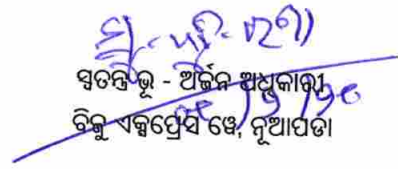 ସ୍ୱତନ୍ତ୍ର ଭୂ - ଅର୍ଜନ ଅଧିକାରୀ
ବିଜୁ ଏକ୍ସପ୍ରେସ ୱେ, ନୂଆପଡା